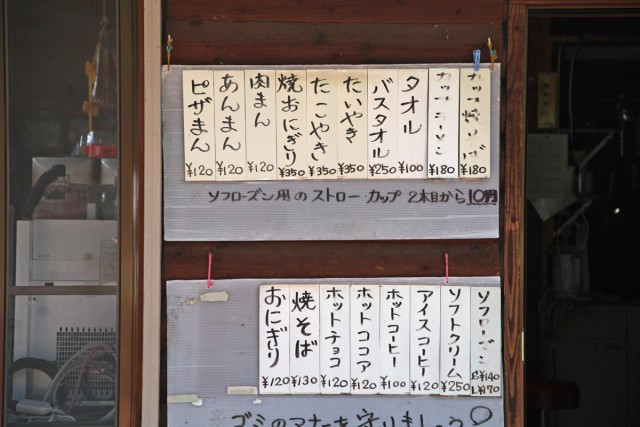 カップ焼そば ¥180
カップラーメン ¥180
タオル ¥100
バスタオル ¥250
たいやき ¥350
たこやき ¥350
焼おにぎり ¥350
肉まん ¥120
あんまん ¥120
ピザまん ¥120
ソフローズン用のストロー・カップ 2本目から10円
ソフローズン S¥140 L¥170
ソフトクリーム ¥250
アイスコーヒー ¥120
ホットコーヒー ¥100
ホットココア ¥120
ホットチョコ ¥120
焼そば ¥130
おにぎり ¥120
ゴミのマナーを守りましょう